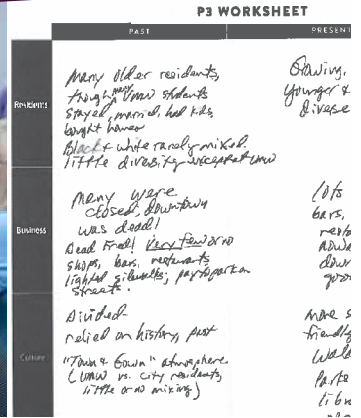 P3 WORKSHEET
PAST
PRESENT
Residents
Many older residents,
though many UMW students
stayed, married, had kids,
bought homes
Black & white rarely mixed.
little diversity except at UMW
Growing,
younger &
diverse
Business
Many were
closed, downtown
was dead!
Dead Fred! Very few or no
shops, bars, restaurants
lighted sidewalks, pay to park on
streets.
lots
bars,
resta
down
Culture
Divided-
relied on history, past
"Town & Gown" atmosphere
(UMW vs. city residents,
little or no mixing)
more
friendly